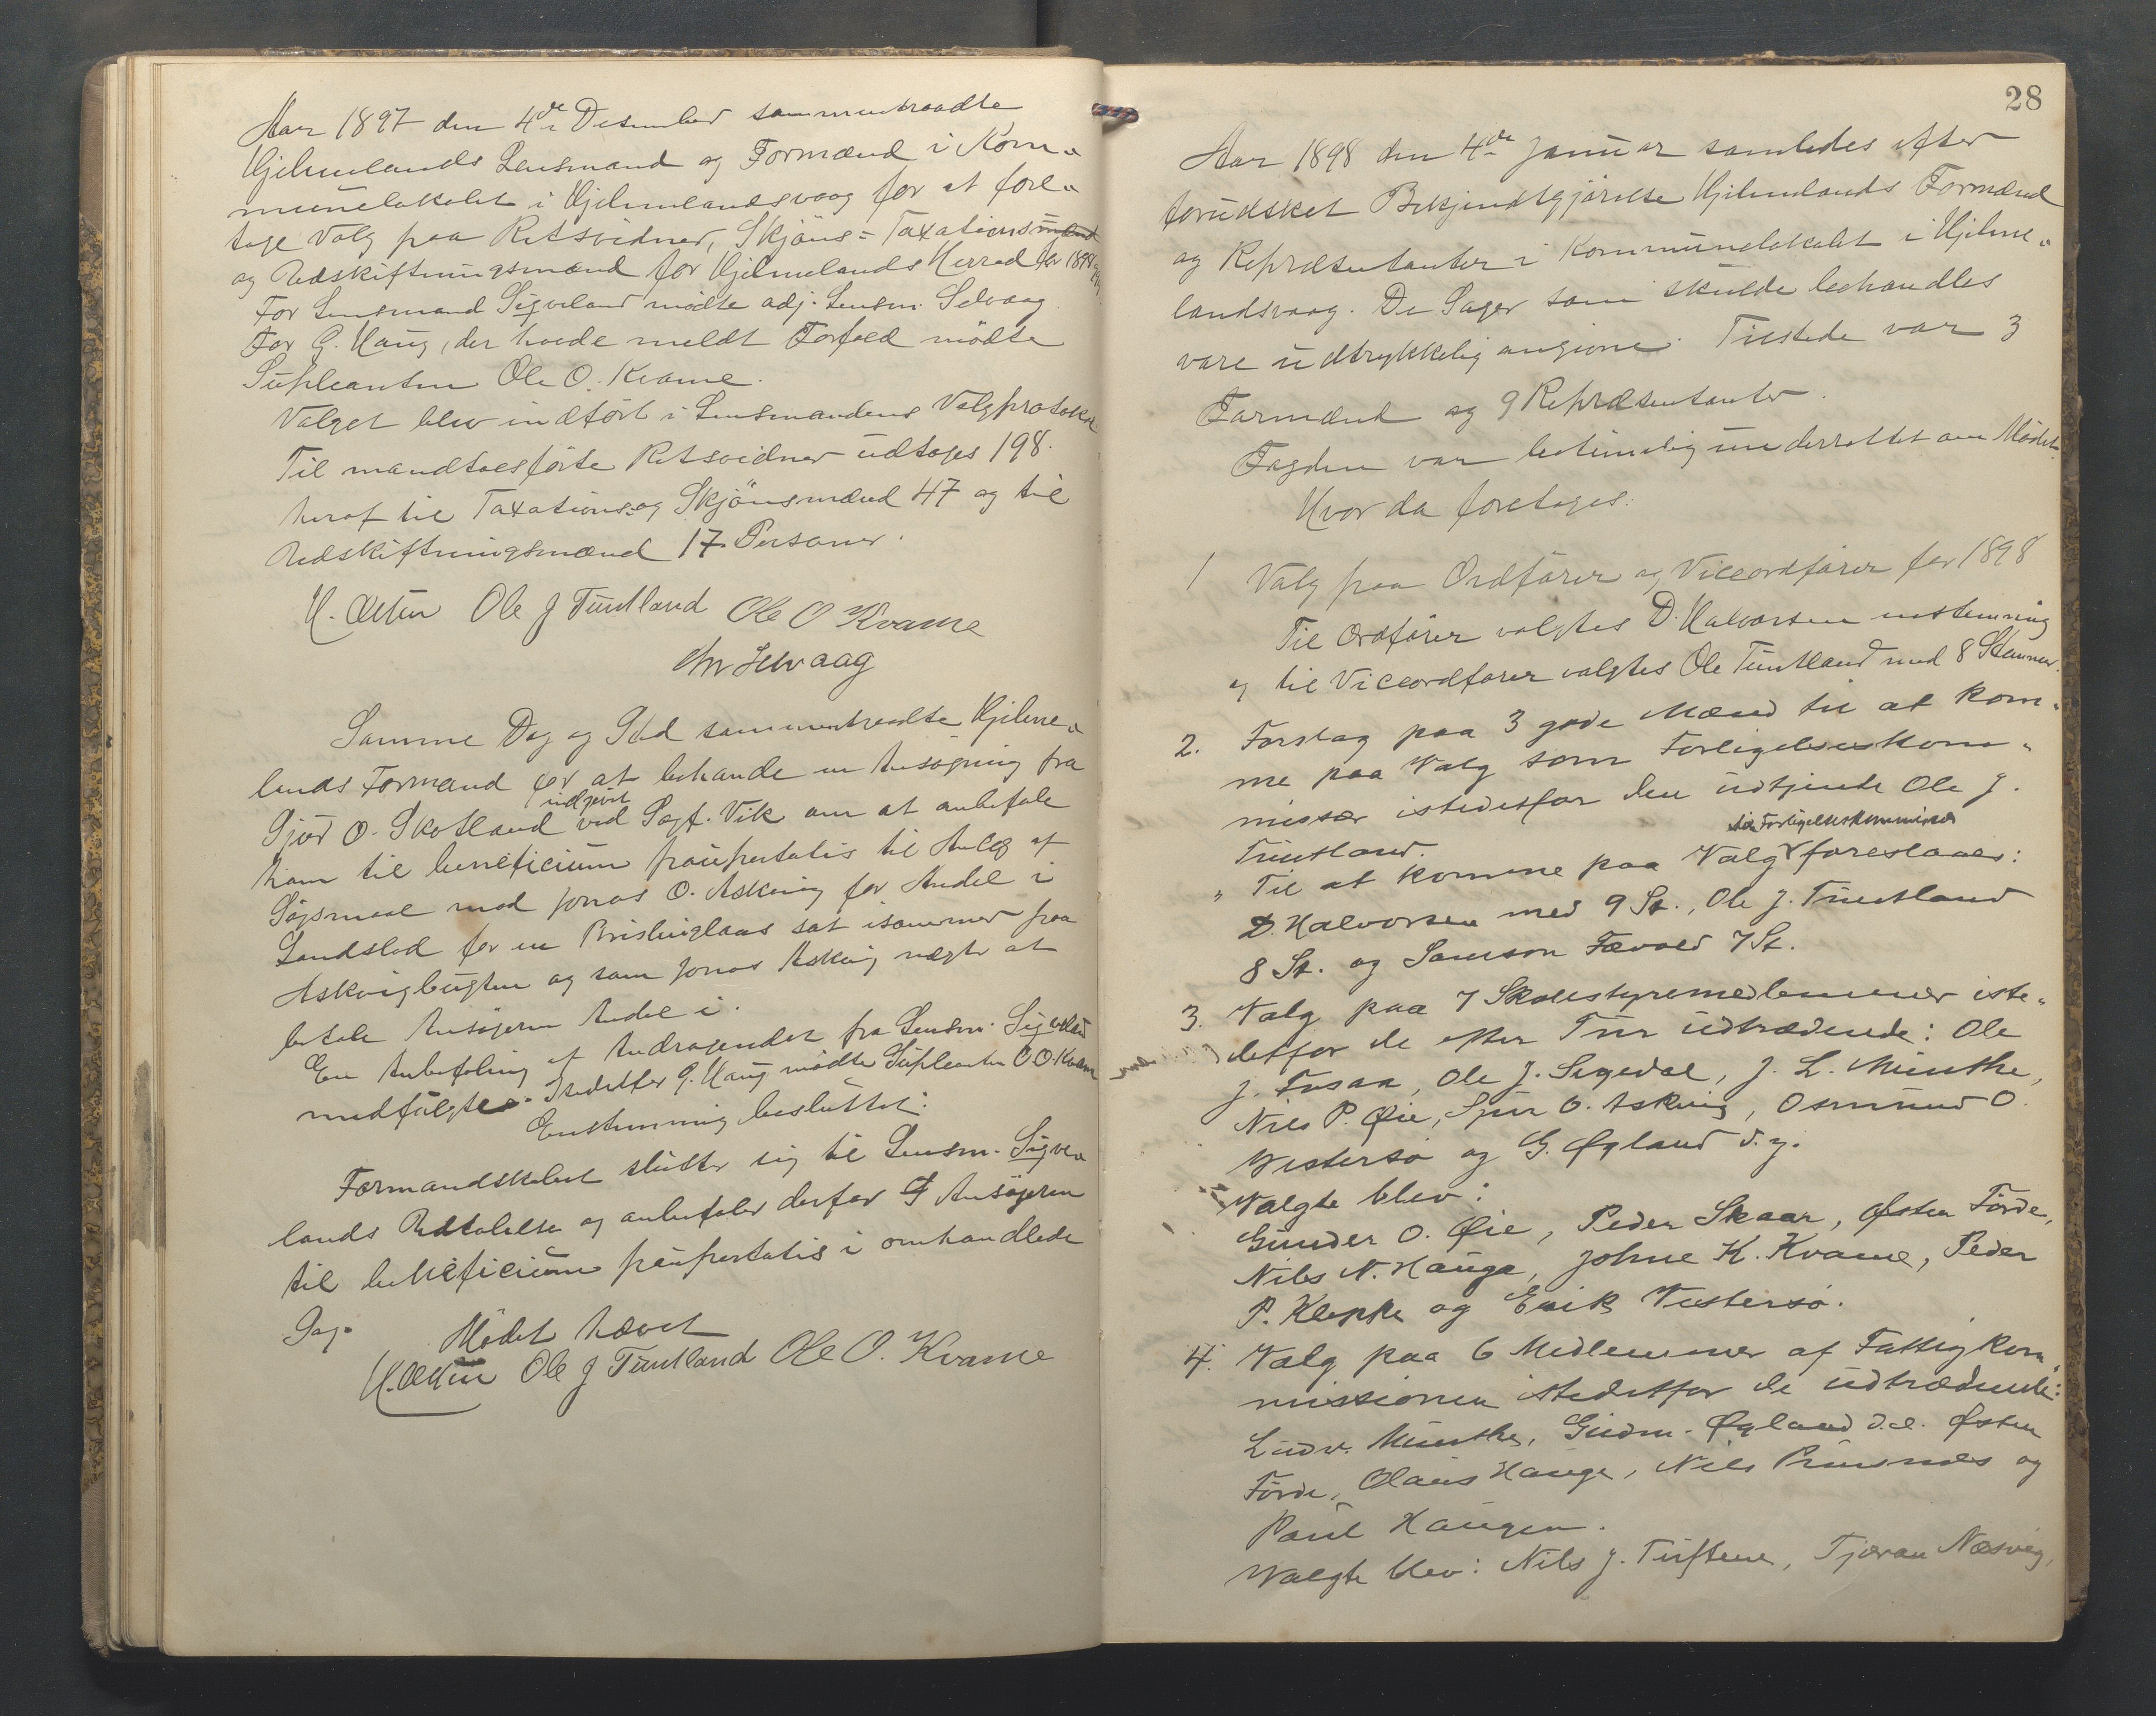 Aar 1897 den 4de Desember sammentraadte
Hjelmelands Lensmand og Formænd i Kom-
munelokalet i Hjelmelandsvaag for at fore-
tage Valg paa Retsvidner, Skjöns= Taxationsmænd
og Udskiftningsmænd for Hjelmelands Herred for 1898
For Lensmand Sigveland mödte adj. Lensm. Selvaag
For G. Haug, der havde meldt Forfald mödte
Supleanten Ole O. Kvame.
Valget blev indfört i Lensmandens Valgprotokol
Til mandtalsförte Retsvidner udtoges 198.
heraf til Taxations- og Skjönsmænd 47 og til
Udskiftningsmænd 17 Personer.
Ole J Tuntland Ole O Kvame
Selvaag
Samme Dag og Sted sammentraadte Hjelme-
lands Formænd for at behandle en Ansøgning fra
Sjur O. Skotland indgivet ved Sagf. Vik om at anbefale
ham til beneficium paupertatis til Anlæg af
Søgsmaal mod Jonas O. Askvig for Andel i
Landslod for en Brislinglaas sat isommer paa
Askvigbugten og som Jonas Askvig nægter at
betale Ansøgeren Andel i.
En Anbefaling af Andragendet fra Lensm. Sigveland
medfulgte. Istedetfor G. Haug mödte Supleanten O O. Kvame
Enstemmig besluttet:
Formandskabet slutter sig til Lensm. Sigve-
lands Udtalelse og anbefaler derfor Ansøgeren
til beneficium paupertatis i omhandlede
Sag. Mödet hævet
Ole J Tuntland Ole O. Kvame
28
Aar 1898 den 4de Januar samledes efter
forudsket Bekjendtgjörelse Hjelmelands Formænd
og Repræsentanter i Kommunelokalet i Hjelme-
landsvaag. De Sager som skulde behandles
vare udtrykkelig angivne. Tilstede var 3
Formænd og 9 Repræsentanter.
Fogden var betimelig underrettet om Mödet.
Hvor da foretages:
1 Valg paa Ordförer og Viceordförer for 1898
Til Ordförer valgtes D. Halvorsen enstemmig
og til Viceordförer valgtes Ole Tuntland med 8 Stemmer.
2. Forslag paa 3 gode Mænd til at kom-
me paa Valg som Forligelseskom-
missær istedetfor den udtjente Ole J.
Tuntland.
" Til at komme paa Valg til Forligelseskommissær foreslaaes:
D. Halvorsen med 9 St., Ole J. Tuntland
8 St. og Samson Fævold 7 St.
3. Valg paa 7 Skolestyremedlemmer iste-
detfor de efter Tur udtrædende: Ole
J. Fusaa, Ole J. Segedal, J. L. Munthe,
Nils P. Øie, Sjur O. Askvig, Osmund O.
Vestersö og G. Øgland d. y.
Valgte blev:
Gunder O. Øie, Peder Skaar, Østen Förde,
Nils N. Hauge, Johne K. Kvame, Peder
P. Kleppe og Erik Vestersö.
4. Valg paa 6 Medlemmer af Fattigkom-
missionen istedetfor de udtrædende:
Ludv. Munthe, Gudm. Øgland d.e. Østen
Förde, Olaus Hauge, Nils Prunnes og
Paul Haugen.
Valgte blev: Nils J. Tuftene, Tjeran Næsvig,